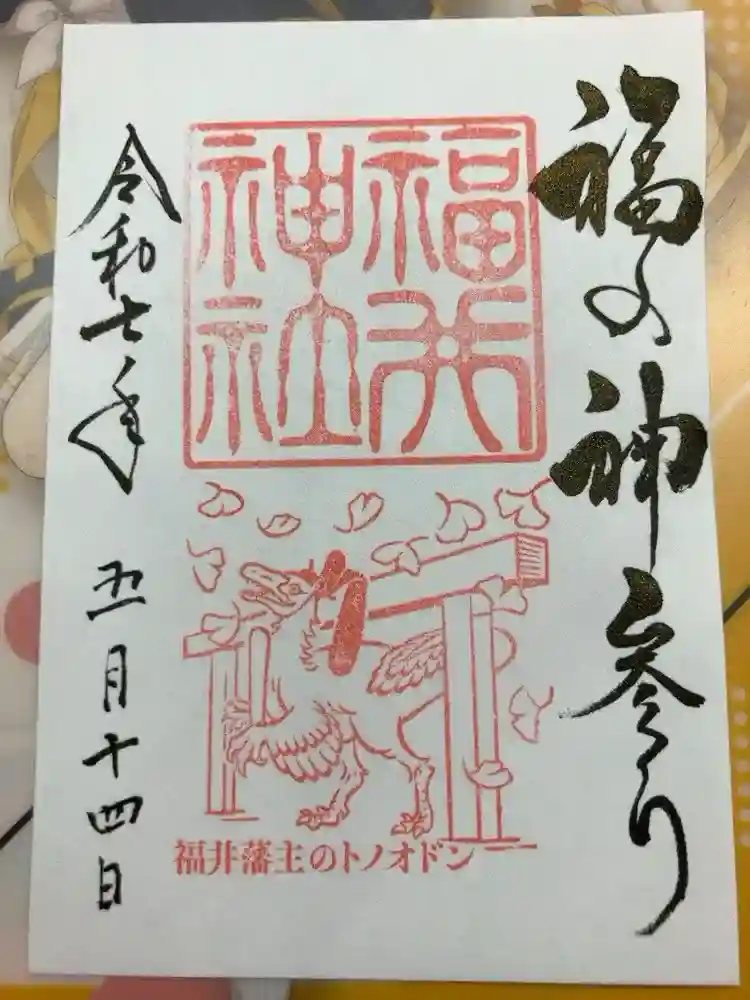 福の神参り
福井
神社
福井藩主のトノオドン
令和七年 五月十四日